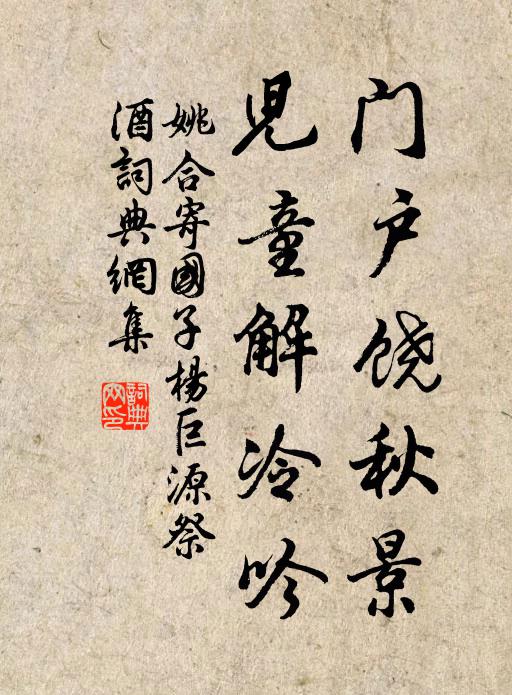 门户饶秋景
児童解冷吟
姚合寄國子楊巨源祭
酒詞典網集
詞典
网印